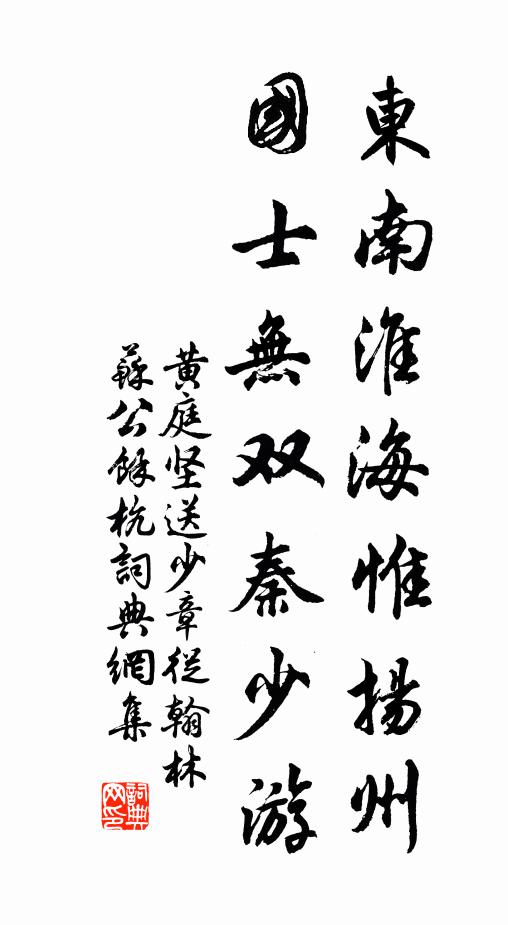 東南淮海惟揚州
國士無双秦少游
黄庭坚送少章從翰林
蘇公餘杭詞典網集
詞典
网印